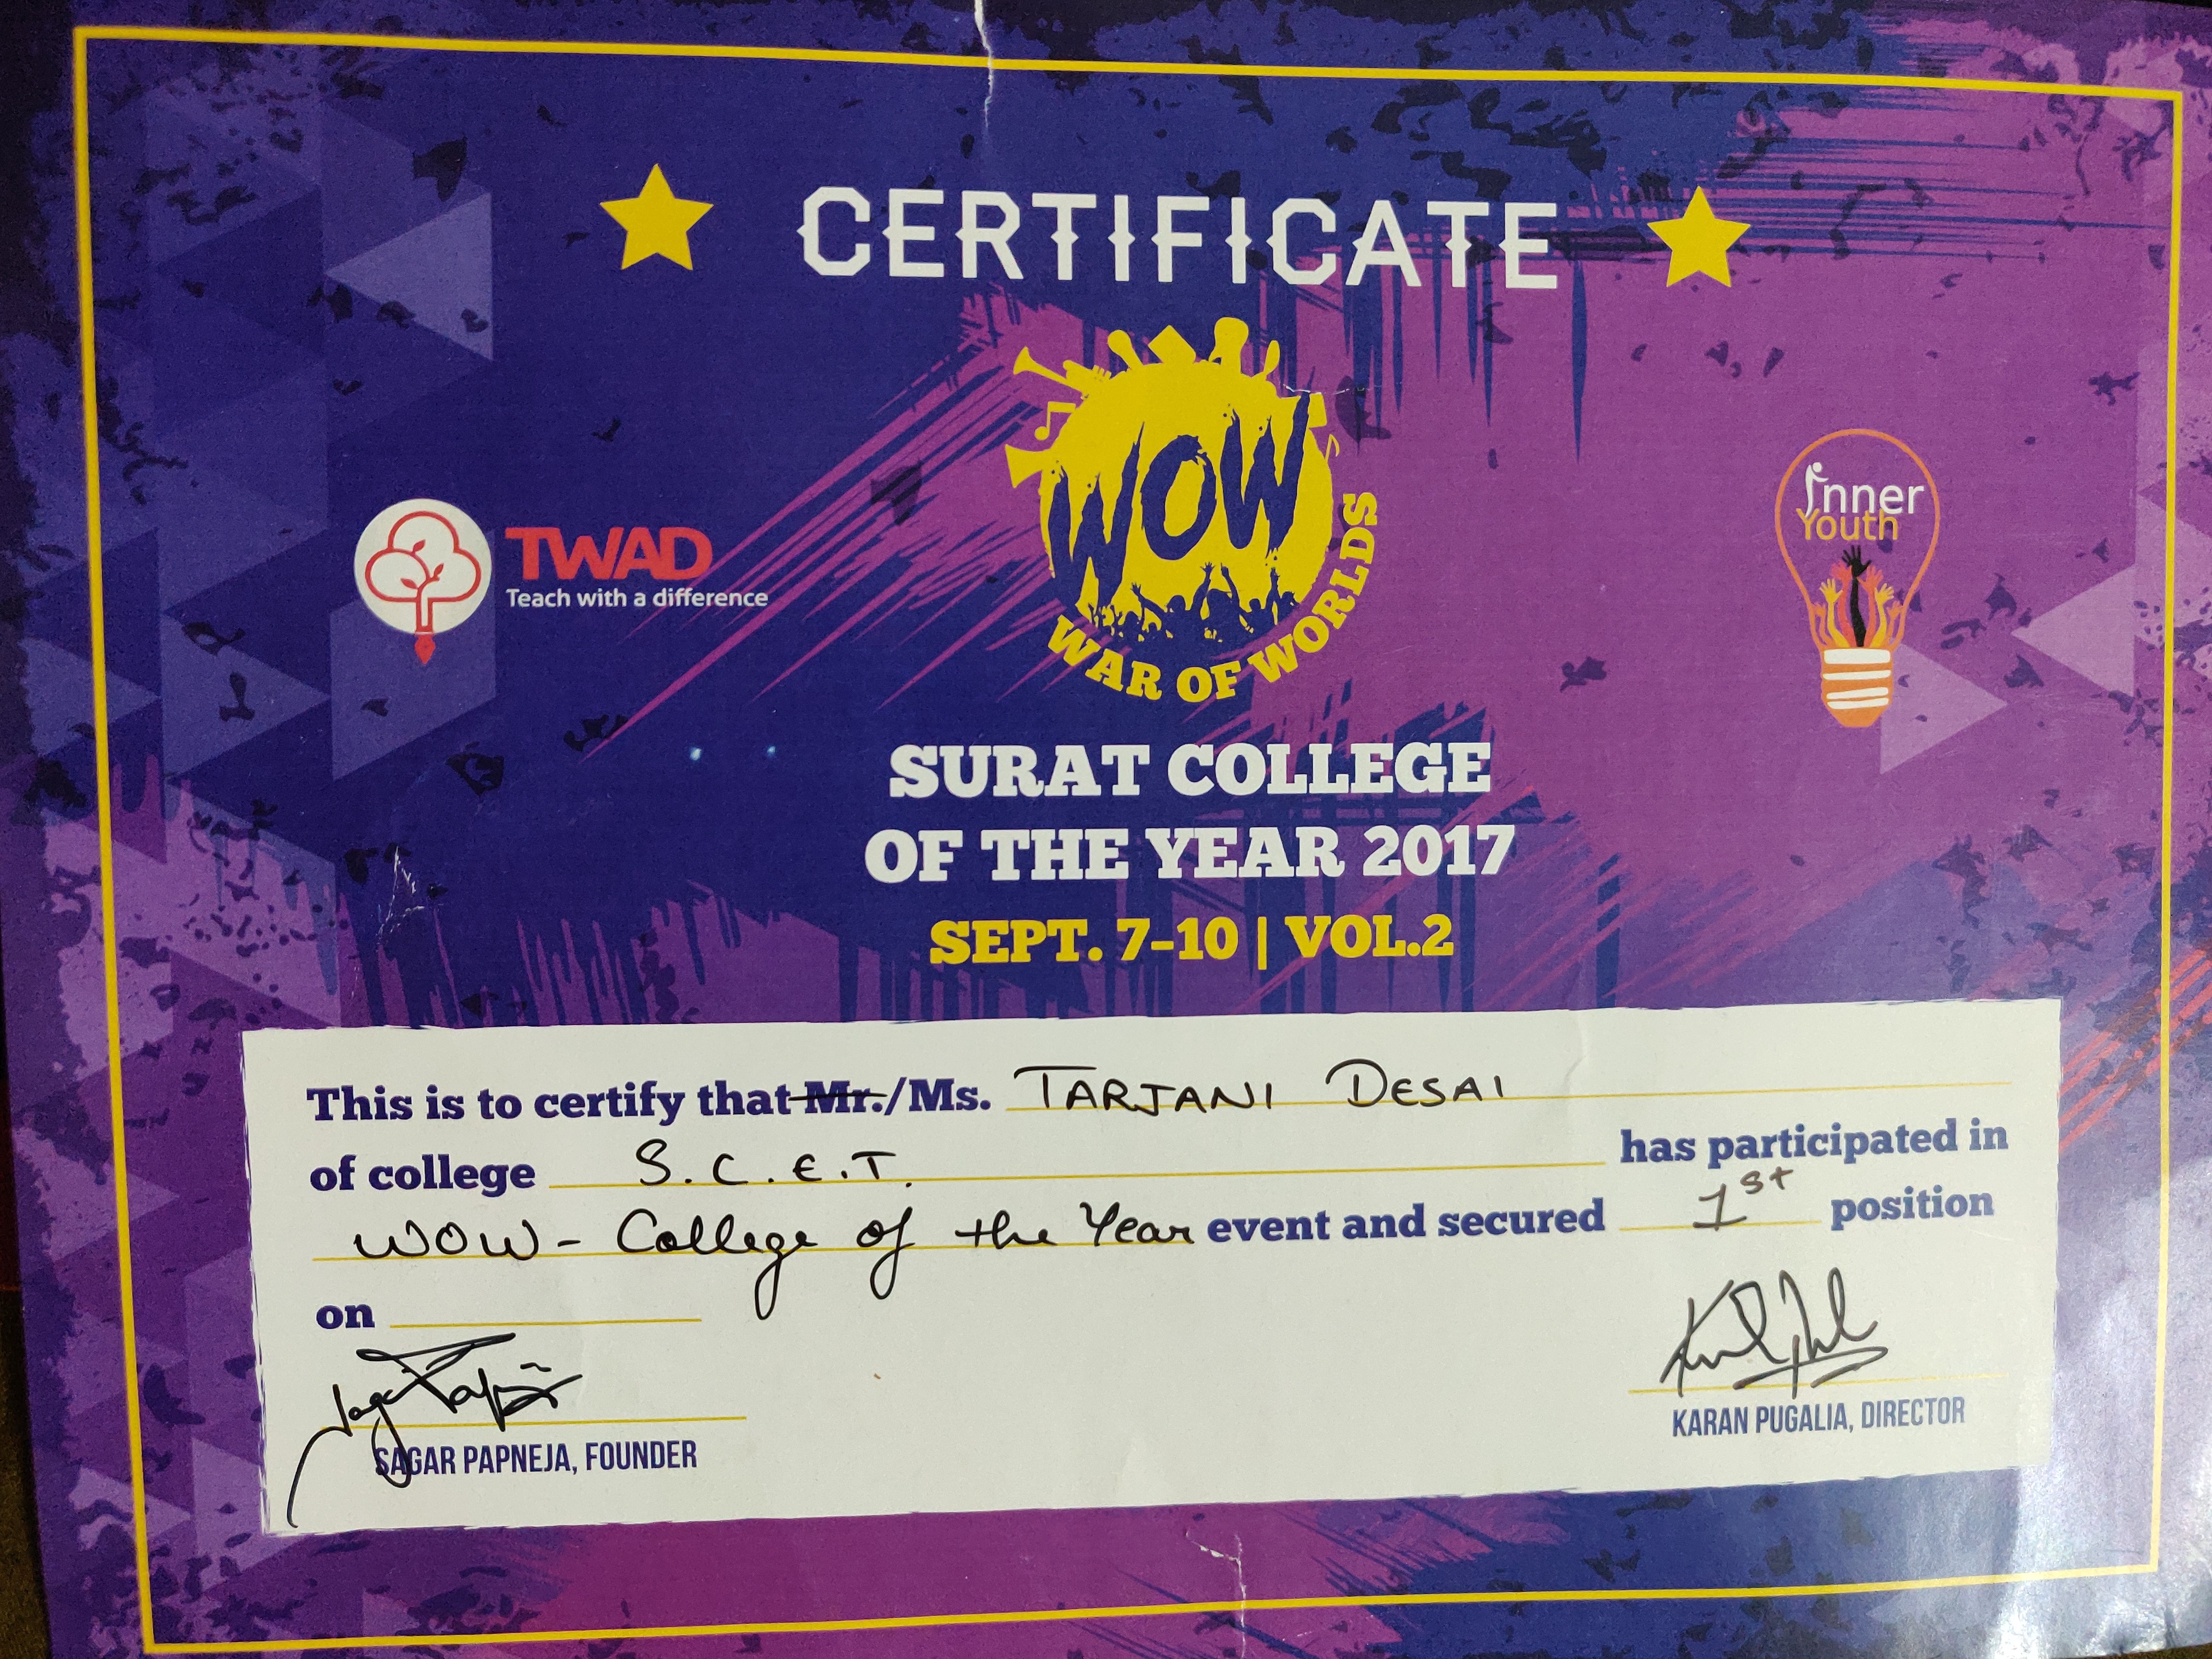 CERTIFICATE
WOW
WAR OF WORLDS
TWAD
Teach with a difference
inner
Youth
SURAT COLLEGE
OF THE YEAR 2017
SEPT. 7-10 | VOL.2
This is to certify that Mr./Ms. TARJANI DESAI
of college S.C.E.T. has participated in
WOW - College of the Year event and secured 1st position
on
SAGAR PAPNEJA, FOUNDER
KARAN PUGALIA, DIRECTOR